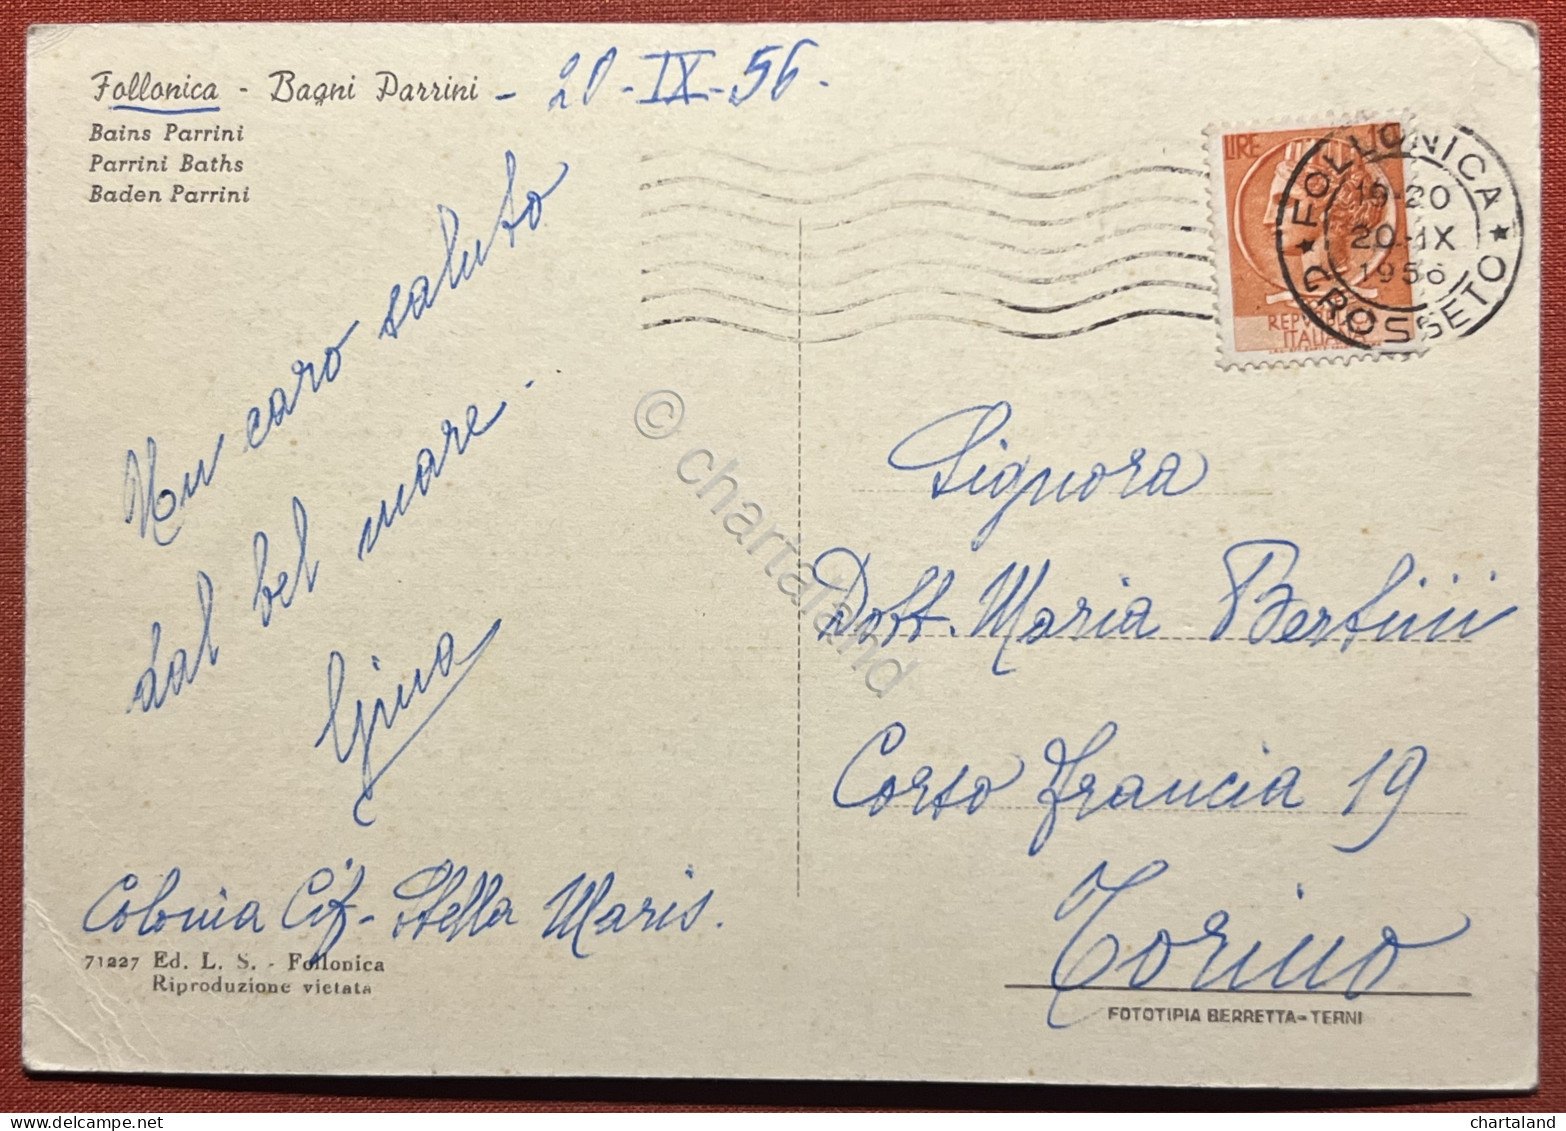 Follonica - Bagni Parrini - 20-IX-56.
Bains Parrini
Parrini Baths
Baden Parrini
Un caro saluto
dal bel mare.
Gina
Colonia Cif- Stella Maris.
71227 Ed. L. S. - Follonica
Riproduzione vietata
LIRE 10
REPVBBLICA
ITALIANA
★ FOLLONICA ★
GROSSETO
19-20
20-IX
1956
Signora
Dott. Maria Bertini
Corso Francia 19
Torino
FOTOTIPIA BERRETTA-TERNI
© chartaland
delcampe.net
chartaland